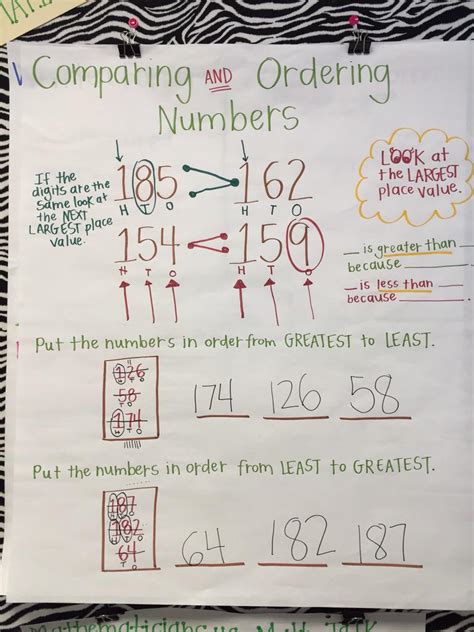 Comparing AND Ordering
Numbers
If the
digits are the
same look at
the NEXT
LARGEST place
value.
185 > 162
H T O H T O
154 < 159
H T O H T O
LOOK at
the LARGEST
place value.
__ is greater than __
because ____
__ is less than __
because ____
Put the numbers in order from GREATEST to LEAST.
126
58
174
H T O
174 126 58
Put the numbers in order from LEAST to GREATEST.
187
182
64
H T O
64 182 187
mathematicians